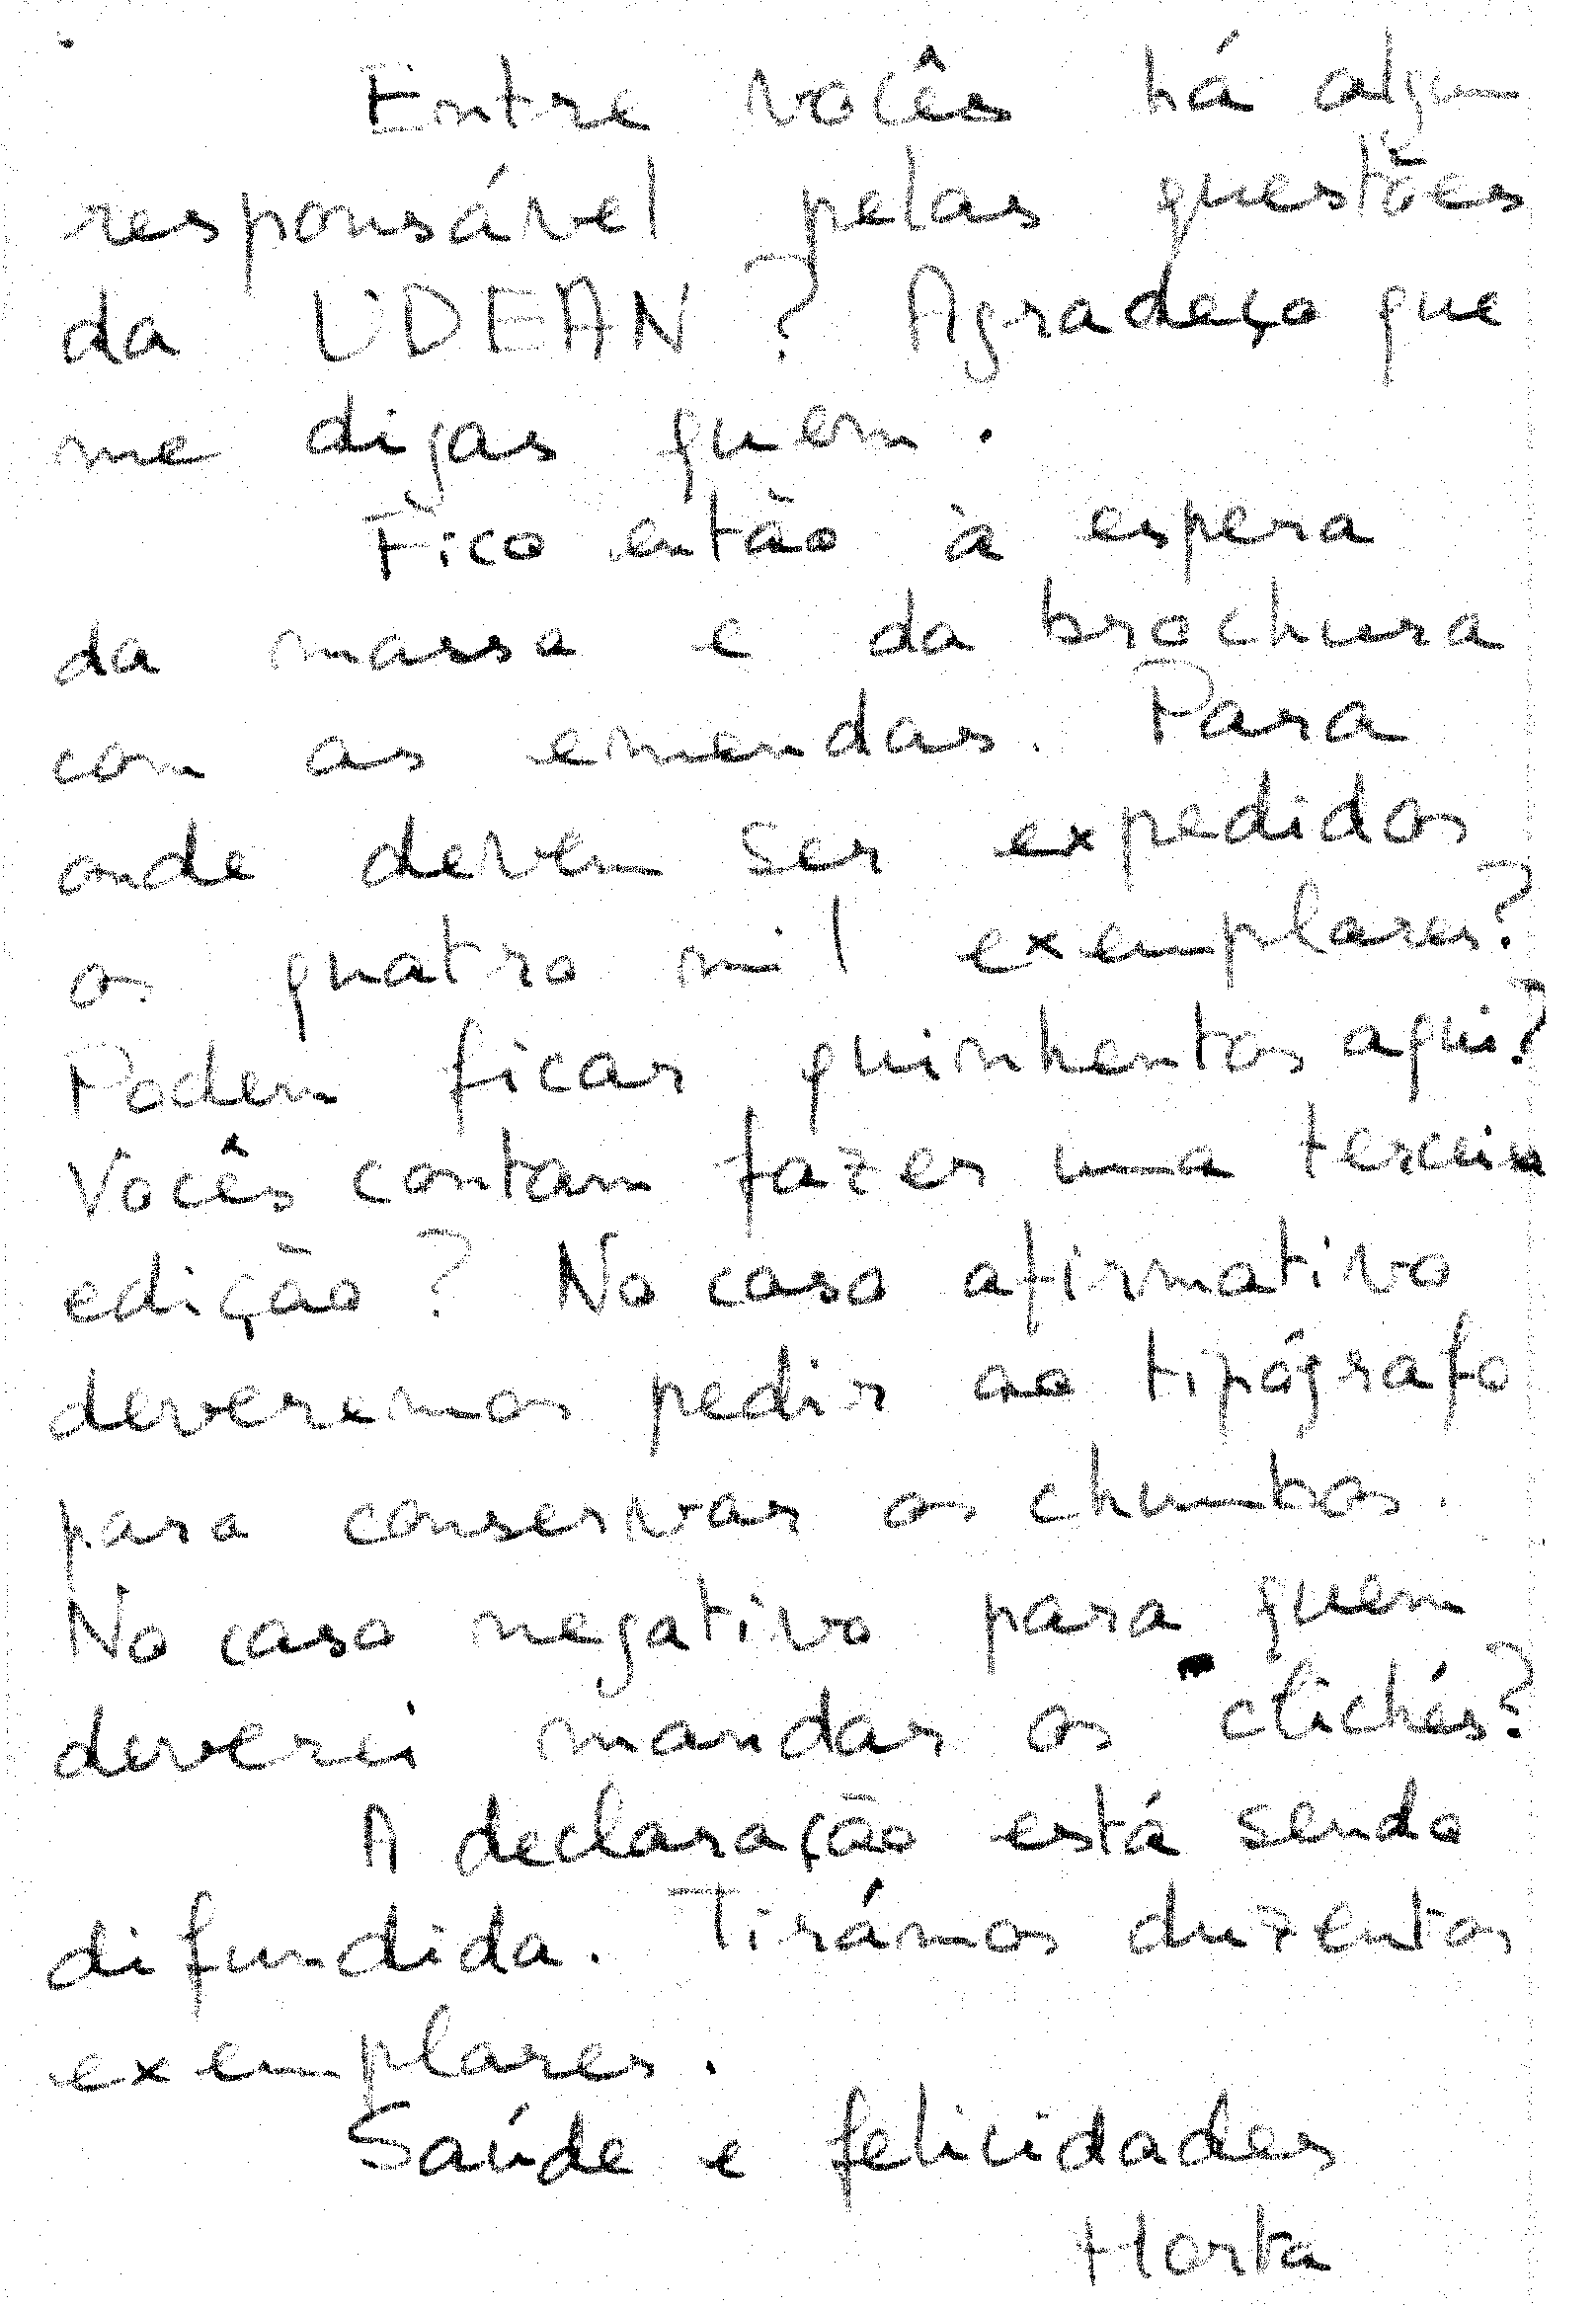 Entre vocês há algum
responsável pelas questões
da UDEAN? Agradeço que
me digas quem.
Fico então à espera
da massa e da brochura
com as emendas. Para
onde devem ser expedidos
os quatro mil exemplares?
Podem ficar quinhentos aqui?
Vocês contam fazer uma terceira
edição? No caso afirmativo
deveremos pedir ao tipógrafo
para conservar os chumbos.
No caso negativo para quem
deverei mandar os clichés?
A declaração está sendo
difundida. Tirámos duzentos
exemplares.
Saúde e felicidades
Horta